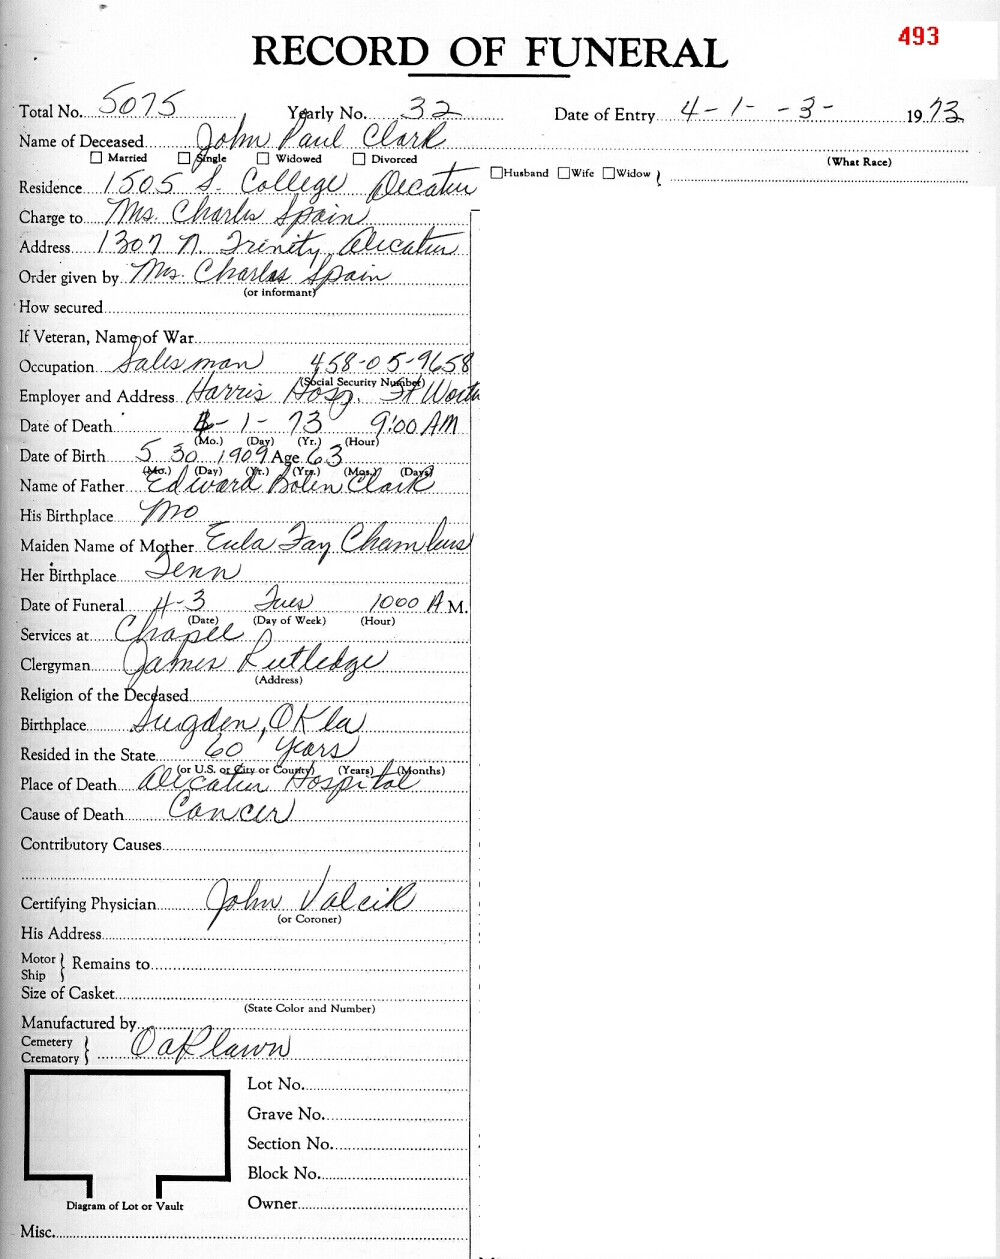 493
RECORD OF FUNERAL
Total No. 5075 Yearly No. 32 Date of Entry 4-1- -3- 1973
Name of Deceased John Paul Clark
☐ Married ☐ Single ☐ Widowed ☐ Divorced (What Race)
☐ Husband ☐ Wife ☐ Widow }
Residence 1505 S. College Decatur
Charge to Mrs. Charles Spain
Address 1307 N. Trinity, Decatur
Order given by Mrs. Charles Spain
(or informant)
How secured
If Veteran, Name of War
Occupation Salesman 458-05-9658
(Social Security Number)
Employer and Address Harris Hosp. Ft Worth
Date of Death 4-1-73 9:00 AM
(Mo.) (Day) (Yr.) (Hour)
Date of Birth 5 30 1909 Age 63
(Mo.) (Day) (Yr.) (Yrs.) (Mos.) (Days)
Name of Father Edward Bolen Clark
His Birthplace Mo
Maiden Name of Mother Eula Fay Chamblus
Her Birthplace Tenn
Date of Funeral 4-3 Tues 1000 A M.
(Date) (Day of Week) (Hour)
Services at Chapel
Clergyman James Rutledge
(Address)
Religion of the Deceased
Birthplace Sugden, Okla
Resided in the State 60 Years
(or U.S. or City or County) (Years) (Months)
Place of Death Decatur Hospital
Cause of Death Cancer
Contributory Causes
Certifying Physician John Valcik
(or Coroner)
His Address
Motor Ship } Remains to
Size of Casket
(State Color and Number)
Manufactured by
Cemetery Crematory } Oaklawn
Lot No.
Grave No.
Section No.
Block No.
Diagram of Lot or Vault
Owner
Misc.